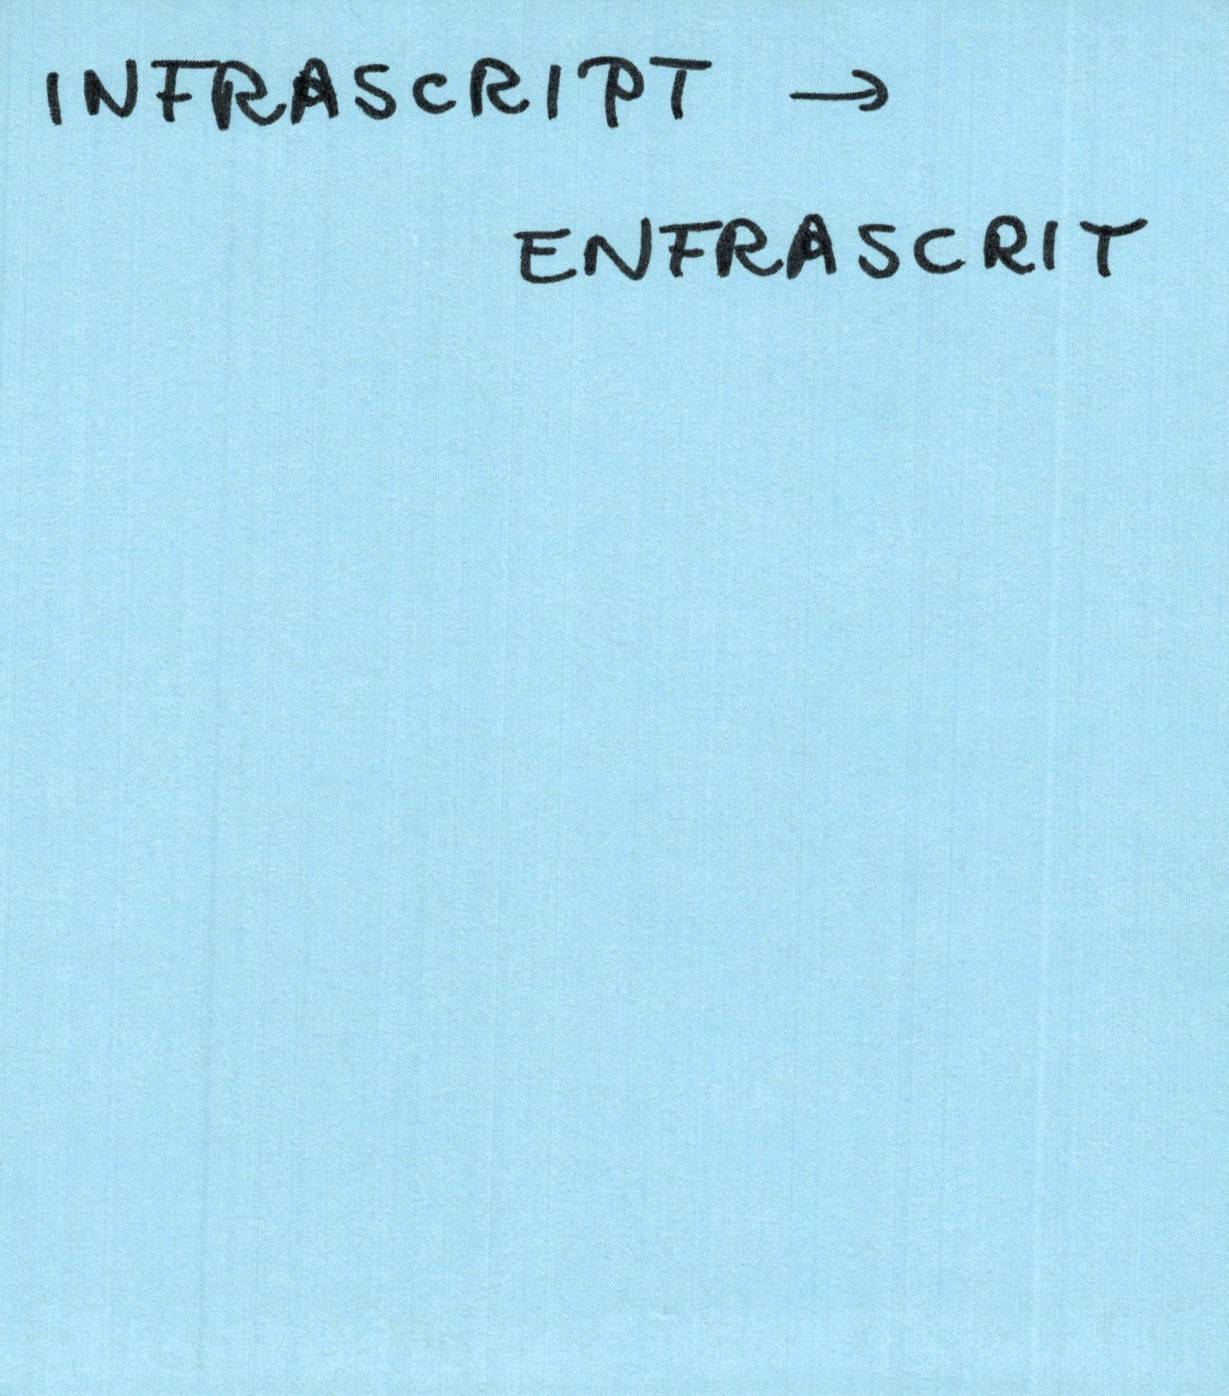 INFRASCRIPT →
ENFRASCRIT